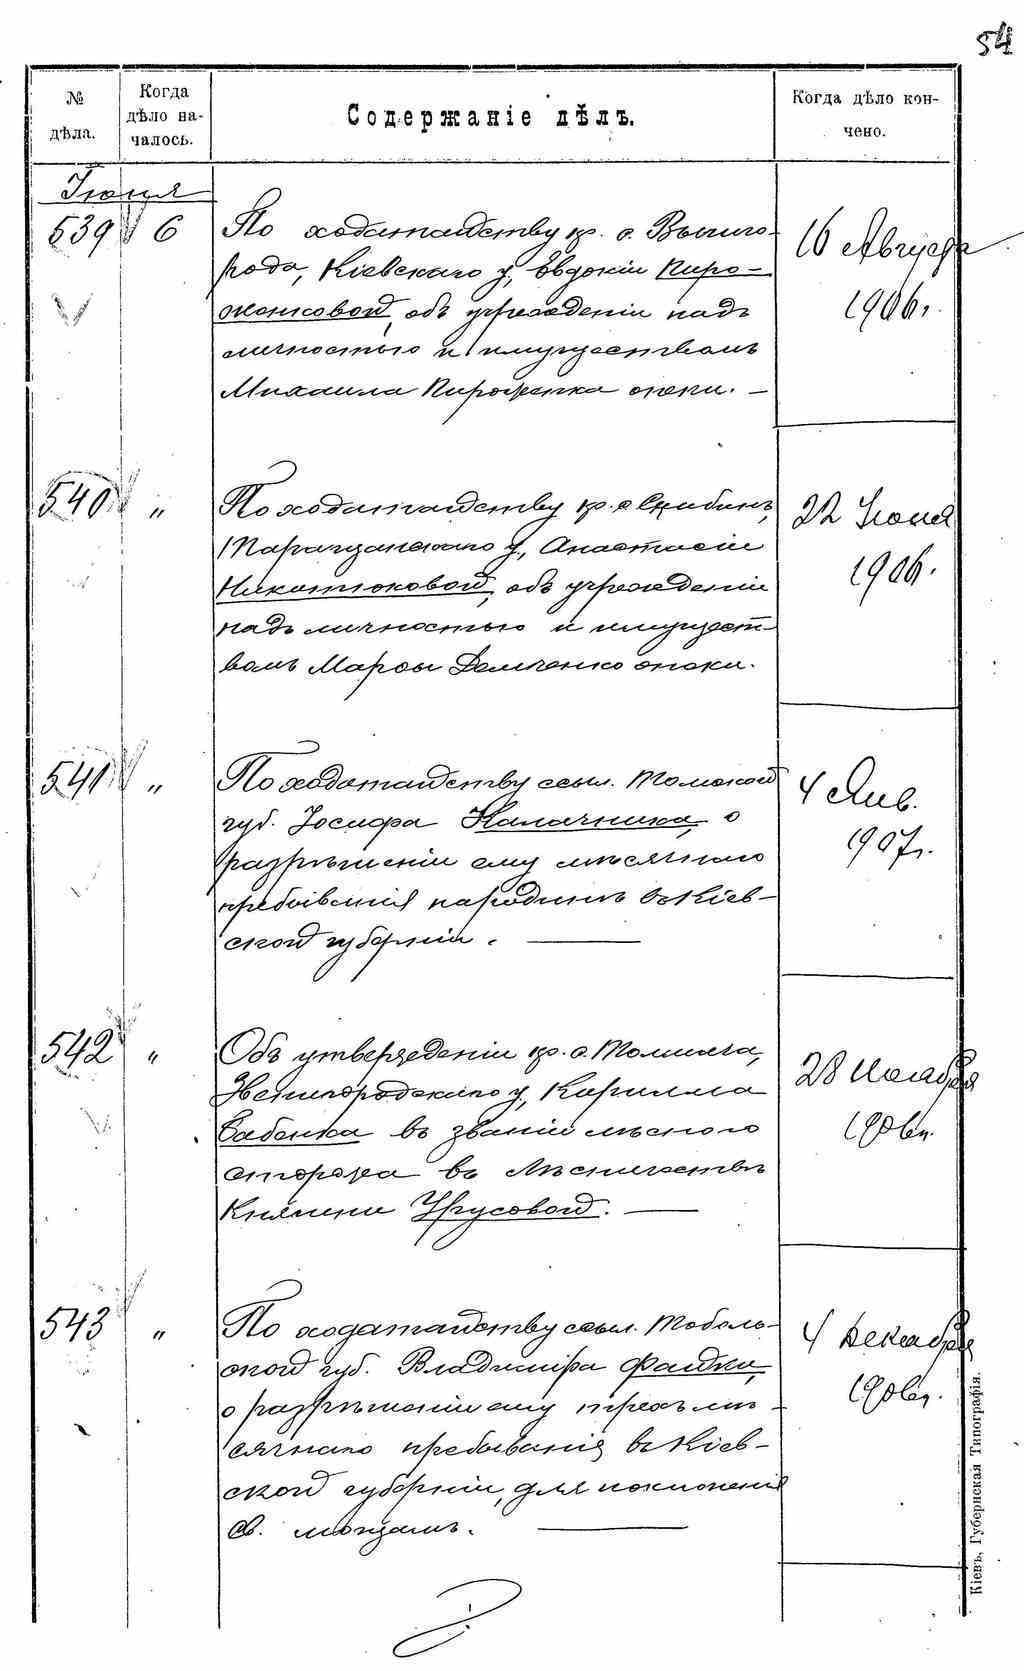 54
№ дѣла.
Когда дѣло на-
чалось.
Содержаніе дѣлъ.
Когда дѣло кон-
чено.
Іюня
539 6 По ходатайству кр. с. Вышго-
рода, Кіевскаго у., Евдокіи Пиро-
женковой, объ учрежденіи надъ
личностью и имуществомъ
Михаила Пироженка опеки. —
16 Августа
1906 г.
540 " По ходатайству кр. с.
Таращанскаго у., Анастасіи
Никитюковой, объ учрежденіи
надъ личностью и имущест-
вомъ Марѳы Демченко опеки.
22 Іюня
1906.
541 " По ходатайству ссыл. Томской
губ. Іосифа Калачника, о
разрѣшеніи ему мѣсячнаго
пребыванія на родинѣ въ Кіев-
ской губерніи. —
4 Янв.
1907 г.
542 " Объ утвержденіи кр. с. Толмача,
Звенигородскаго у., Кирилла
Бабенка въ званіи лѣсного
сторожа въ лѣсничествѣ
Княгини Урусовой. —
28 Ноября
1906 г.
543 " По ходатайству ссыл. Тоболь-
ской губ. Владиміра
о разрѣшеніи ему трехъ мѣ-
сячнаго пребыванія въ Кіев-
ской губерніи, для поклоненія
св. мощамъ. —
4 Декабря
1906 г.
Кіевъ, Губернская Типографія.